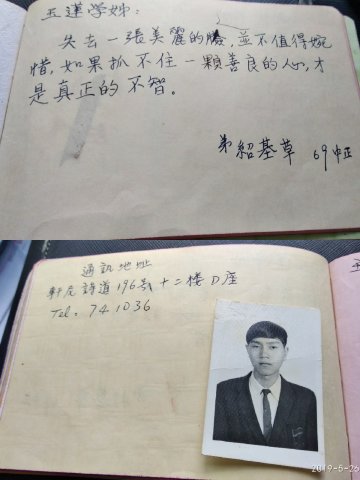 玉蓮学姊：
失去一張美麗的臉，並不值得婉
惜，如果抓不住一顆善良的心，才
是真正的不智。
弟紹基草 69中正
通訊地址
軒尼詩道196号十二楼D座
Tel. 741036
2019-5-26